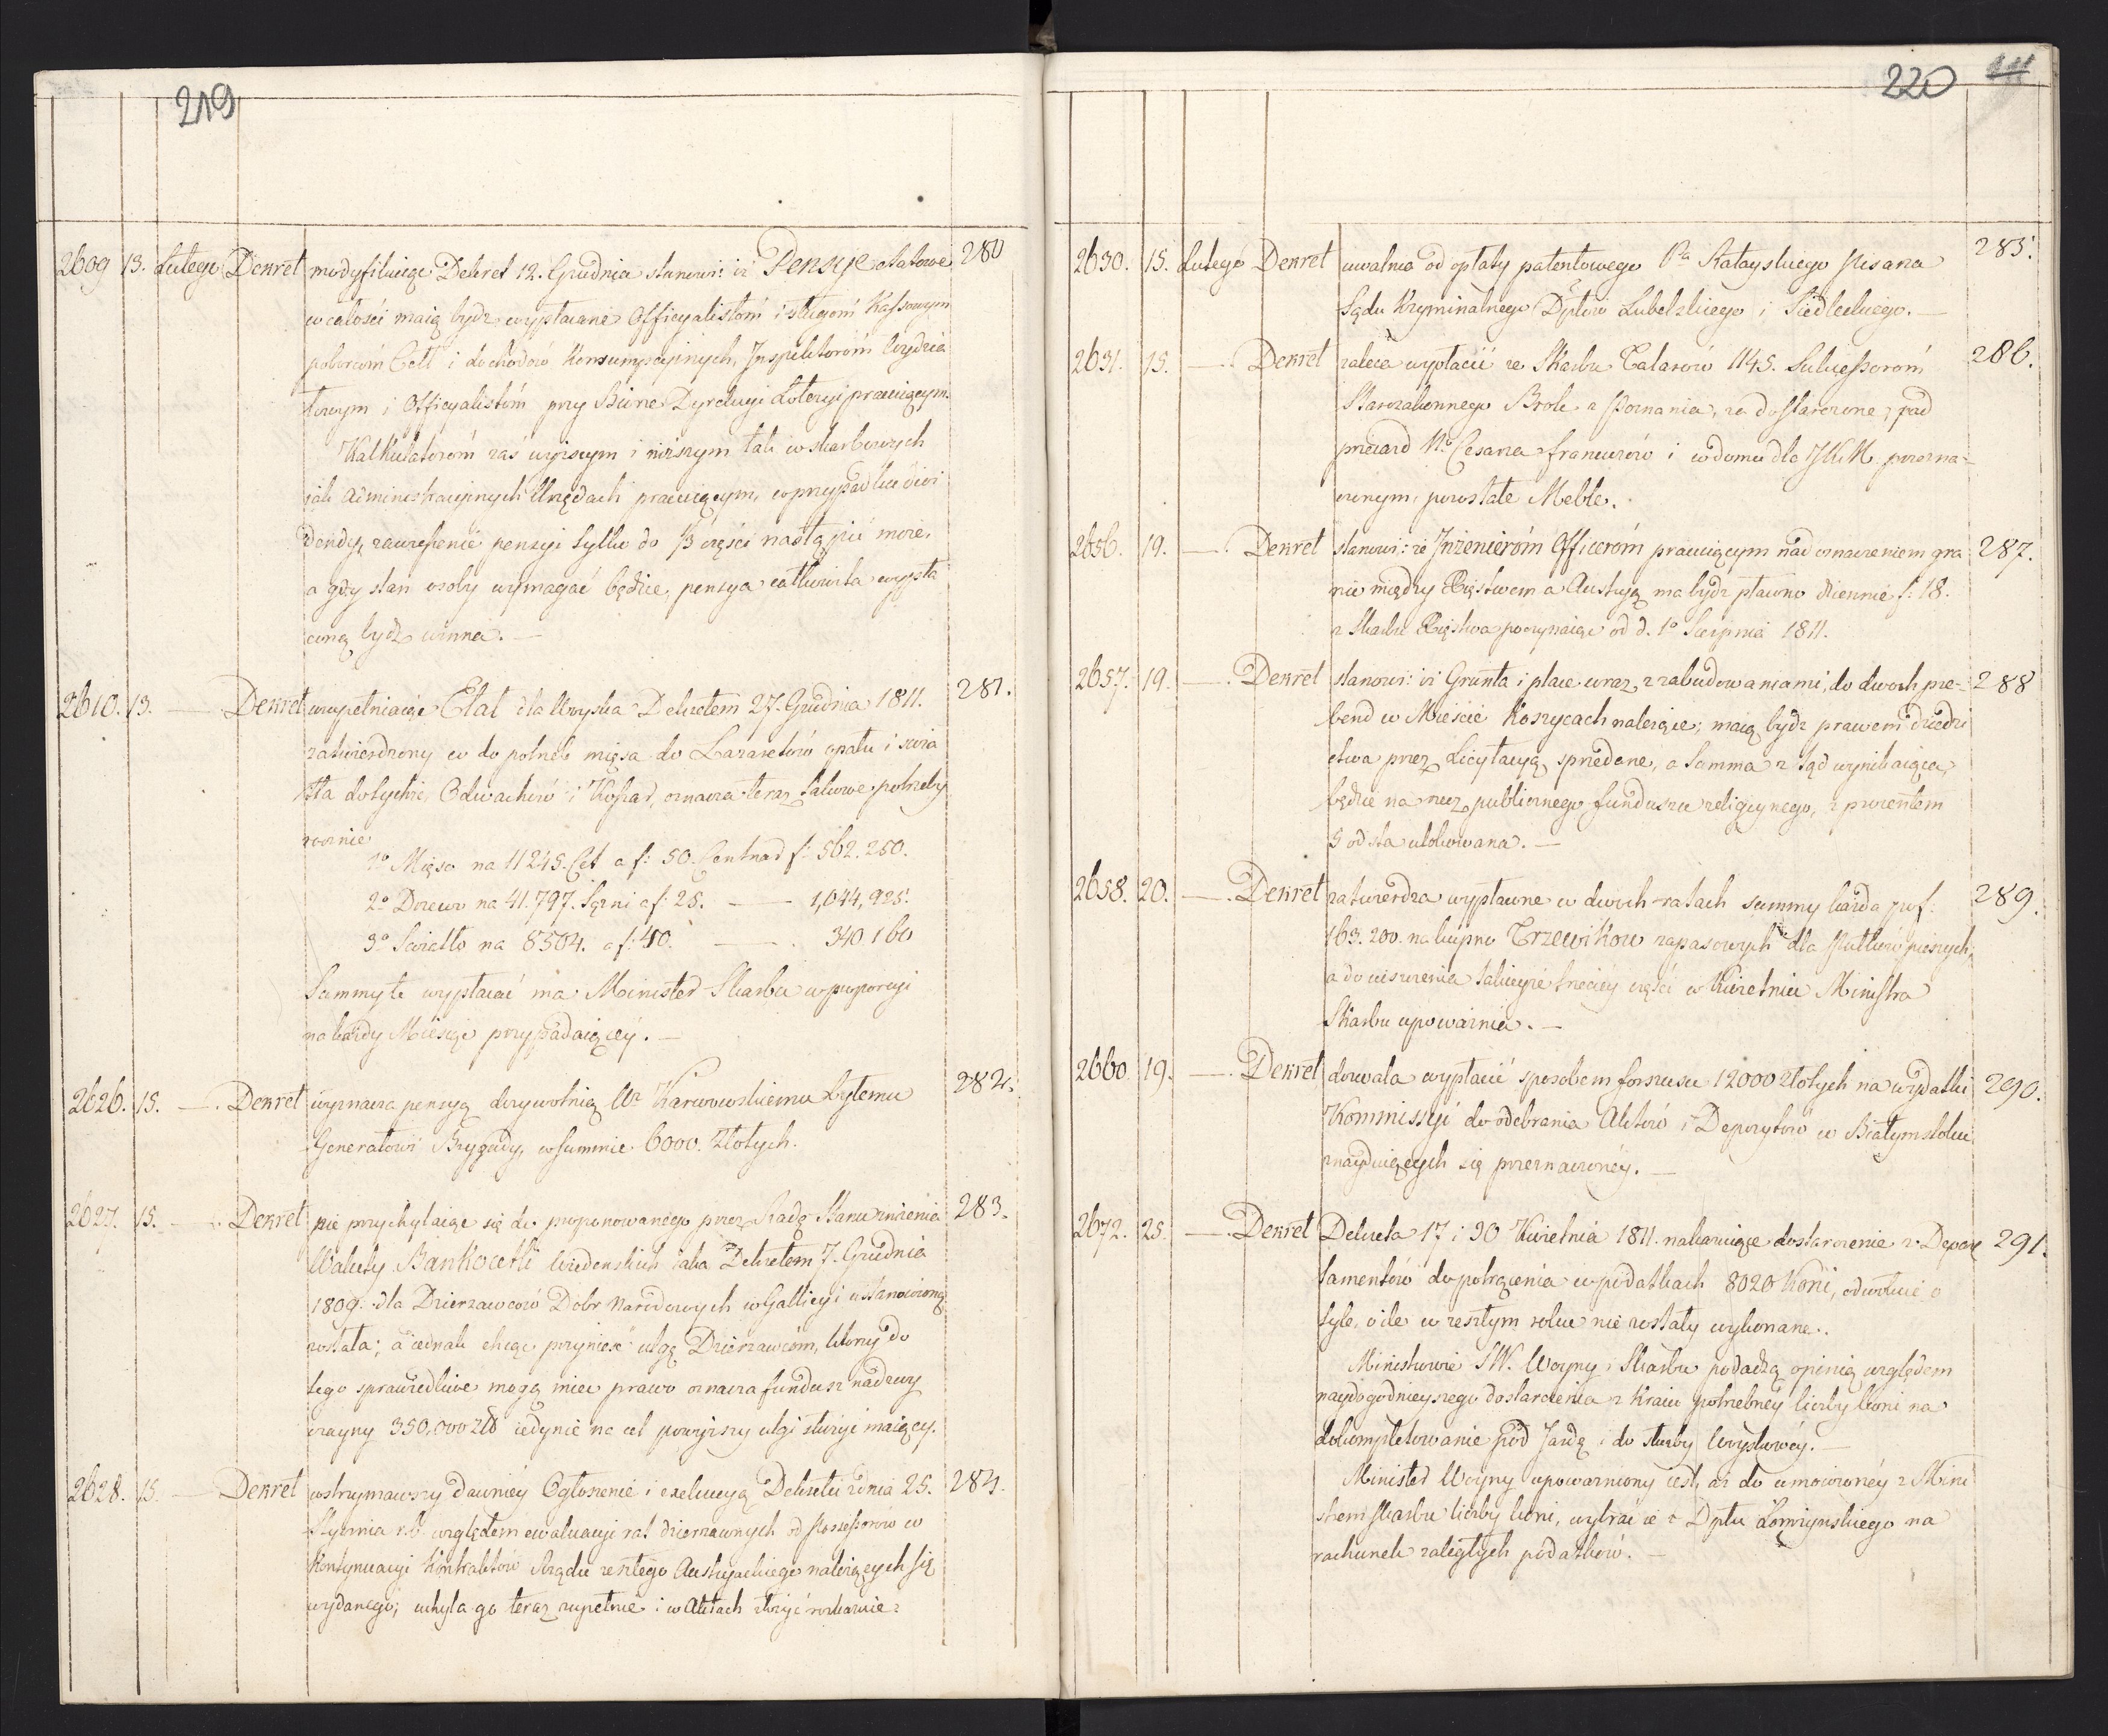 219
2609 13. Lutego Dekret modyfikuiąc Dekret 12. Grudnia stanowi: iż Pensye etatowe 280
w całości maią bydź wypłacane Officyalistóm i sługom Kassowym
poborcom Ceł i dochodów Konsumpcyinych, Inspektoróm Wydzia
łowym i Officyalistóm przy Biórze Dyrekcyi Loteryi pracuiącym.
Kalkulatoróm zaś wyższym i niższym tak w skarbowych
iak Administracyinych Urzędach pracuiącym, w przypadku
zawieszenie pensyi tylko do ⅓ części nastąpić może,
a gdy stan osoby wymagać będzie, pensya całkowita wypła
coną bydź winna. —
2610. 13. — Dekret uzupełniaiąc Etat dla Woyska Dekretem 27. Grudnia 1811. 281.
zatwierdzony co do potrzeb mięsa do Lazaretów opału i świa
tła dotychże, Odwachów i Koszar, oznacza teraz takowe potrzeby
rocznie
1º Mięso na 11245. Cet a f: 50. Centnar f: 562.250.
2º Drzewo na 41.797. Sążni a f: 25. — 1,044,925.
3º Swiatło na 8504. a f: 40. — 340.160
Summy te wypłacać ma Minister Skarbu w proporcyi
na każdy Miesiąc przypadaiącey. —
2626. 15. — Dekret wyznacza pensyą dożywotnią Ur Karwowskiemu byłemu 282.
Generałowi Brygady, w summie 6000. Złotych.
2627. 15. — Dekret nie przychylaiąc się do proponowanego przez Radę Stanu zniżenia 283.
Waluty Bankocetli Wiedenskich iaka Dekretem 7. Grudnia
1809. dla Dzierzawców Dobr Narodowych w Gallicyi ustanowioną
została; a iednak chcąc przynieść ulgę Dzierzawcóm, którzy do
tego sprawiedliwe mogą mieć prawo oznacza fundusz nadzwy
czayny 350,000 Złł iedynie na cel powyższy ulgi służyć maiący.
2628. 15. — Dekret wstrzymawszy dawniey Ogłoszenie i exekucyą Dekretu z dnia 25. 284.
Stycznia r.b. względem ewaluacyi rat dzierzawnych od Possessorów w
Kontynuacyi Kontraktów Rządu zeszłego Austryackiego należących się
wydanego; uchyla go teraz zupełnie i w Aktach złożyć rozkazuie.
220
2630. 15. Lutego Dekret uwalnia od opłaty patentowego Pa Katayskiego Pisarza 285.
Sądu Kryminalnego Dptów Lubelskiego i Siedleckiego. —
2631. 15. — Dekret zaleca wypłacić ze Skarbu Talarów 1145. Sukcessoróm 286.
Starozakonnego Brok z Poznania, za dostarczone, pod
przeiazd Nº Cesarza francuzów i w domu dla JKM. przezna-
czonym, pozostałe Meble.
2656. 19. — Dekret stanowi: że Inżenieróm Officeróm pracuiącym nad oznaczeniem gra 287.
nic między Xięstwem a Austryą ma bydź płacono dziennie f: 18.
z Skarbu Xięstwa poczynaiąc od d. 1º Sierpnia 1811.
2657. 19. — Dekret stanowi: iż Grunta i place wraz z zabudowaniami, do dwoch pre- 288
bend w Mieście Koszycach należące; maią bydź prawem dziedzi
ctwa przez Licytacyą sprzedane, a Summa z tąd wynikaiąca,
będzie na rzecz publicznego funduszu religiynego, z procentem
5 od sta ulokowana. —
2658. 20. — Dekret zatwierdza wypłacone w dwoch ratach summy każda po f: 289.
163.200. na kupno Trzewikow zapasowych dla Pułków pieszych,
a do uiszczenia takieyże trzeciey części w Kwietniu Ministra
Skarbu upoważnia. —
2660. 19. — Dekret dozwala wypłacić sposobem forszusu 12000 Złotych na wydatki 290.
Kommissyi do odebrania Aktów i Depozytów w Białymstoku
znayduiących się przeznaczoney. —
2672. 25. — Dekret Dekreta 17 i 30 Kwietnia 1811. nakazuiące dostarczenie z Depar 291.
tamentów do potrącenia w podatkach 8020 Koni, odwołuie o
tyle, o ile w zeszłym roku nie zostały wykonane.
Ministrowie SW. Woyny i Skarbu podadzą opinią względem
naydogodnieyszego dostarczenia z Kraiu potrzebney liczby koni na
dokompletowanie pod Jazdę i do służby Woyskowéy. —
Minister Woyny upoważniony iest, aż do umowioney z Mini
strem Skarbu liczby koni, wybrać ie z Dptu Łomżynskiego na
rachunek zaległych podatków. —